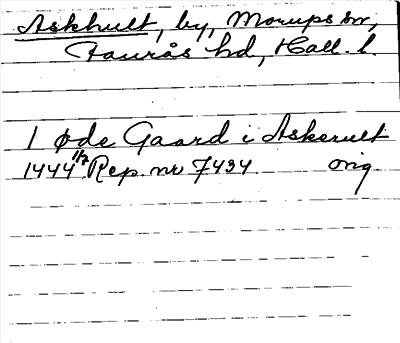 Askhult, by, Morups sn,
Faurås hd, Hall. l.
1 øde Gaard i Askerult
1444 1/2 Rep. nr 7434 orig